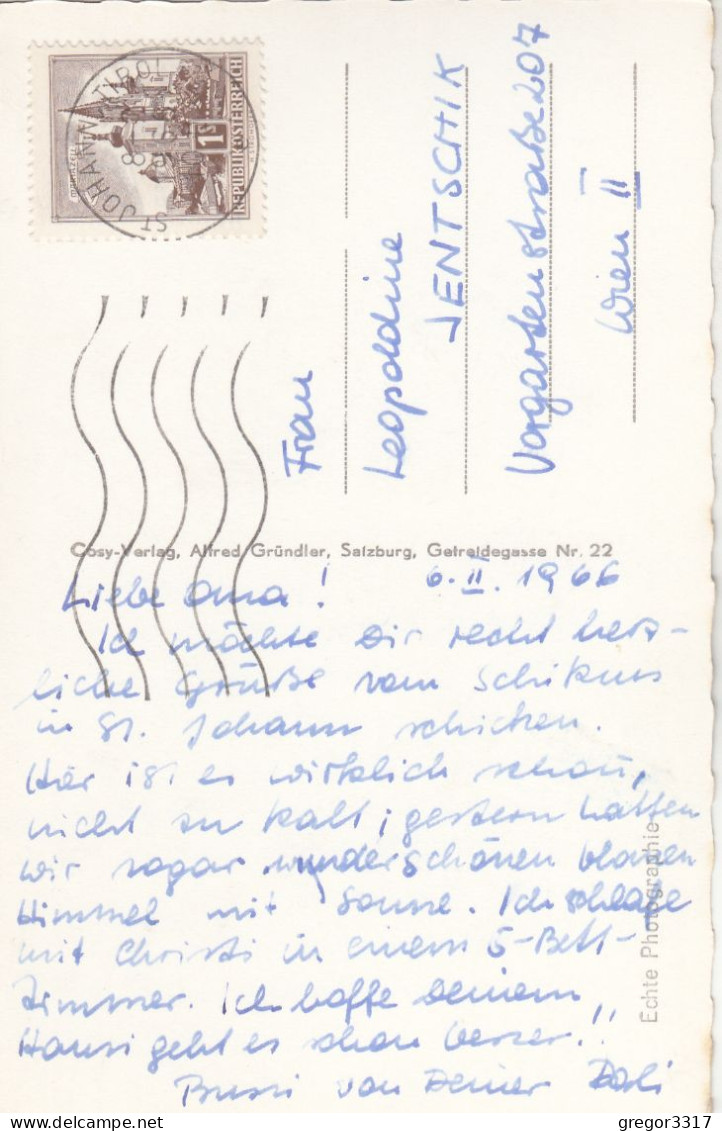 ST. JOHANN TIROL
1S
REPUBLIK ÖSTERREICH
Frau
Leopoldine
JENTSCHIK
Vorgartenstraße 207
Wien II
Cosy-Verlag, Alfred Gründler, Salzburg, Getreidegasse Nr. 22
6. II. 1966
Liebe Oma!
Ich möchte Dir recht herz-
liche Grüße vom Schikurs
in St. Johann schicken.
Hier ist es wirklich schön,
nicht zu kalt; gestern hatten
wir sogar wunderschönen blauen
Himmel mit Sonne. Ich schlafe
mit Christi in einem 5-Bett-
Zimmer. Ich hoffe deinem
Hansi geht es schon besser!!
Bussi von Deiner
Echte Photographie
gregor3317